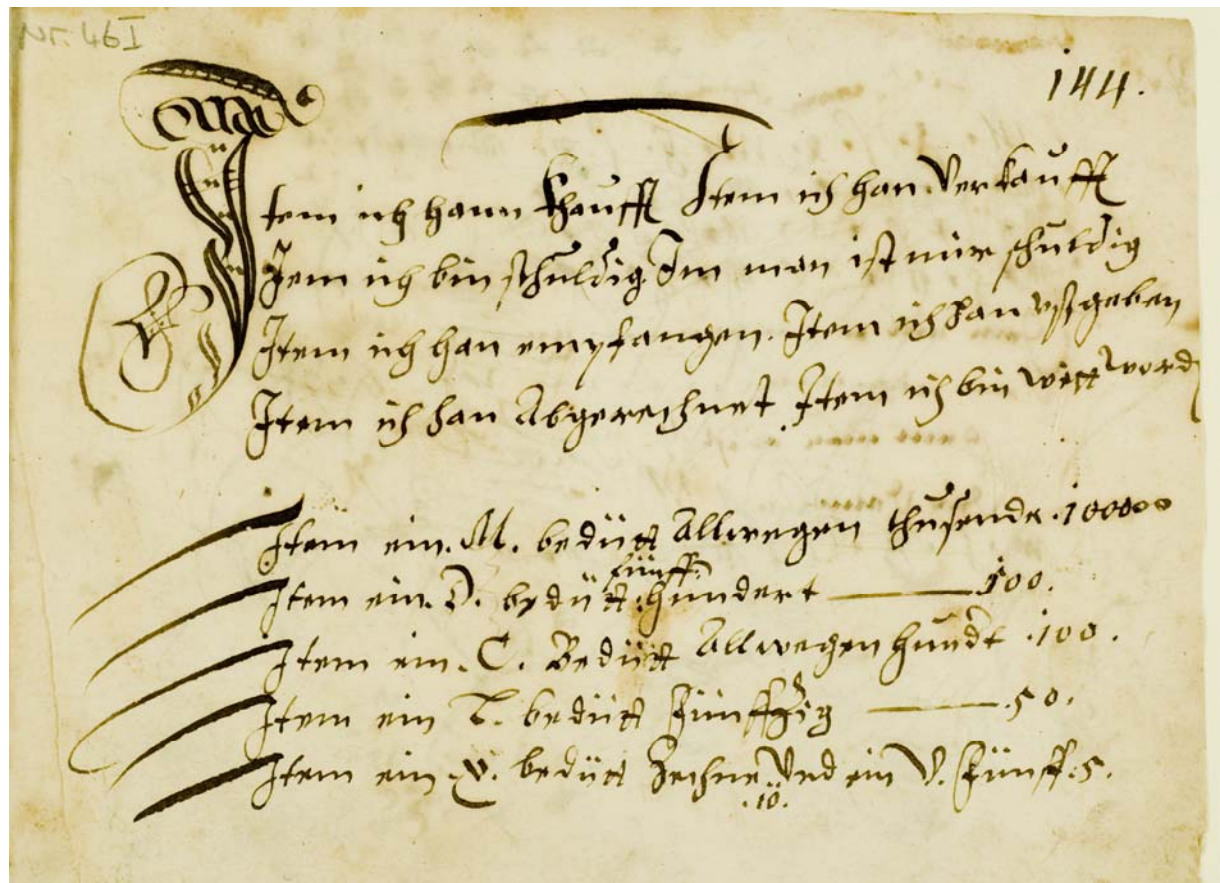 Nr. 46 I
144.
Item ich hann khaufft Item ich han Verkaufft
Jtem ich bin schuldig Jm man ist mir schuldig
Item ich han empfangen. Item ich han vßgeben
Item ich han Abgerechnet Item ich bin wett word
Item ein. M. bedütt Allwegen thusendt .100000
fünff
Item ein. D. bedütt hundert — 100.
Item ein. C. Bedütt Allwegen hundt .100.
Item ein L. bedütt Fünffzig — .50.
Item ein .X. bedütt Zechne Vnd ein V. Fünff .5.
.10.